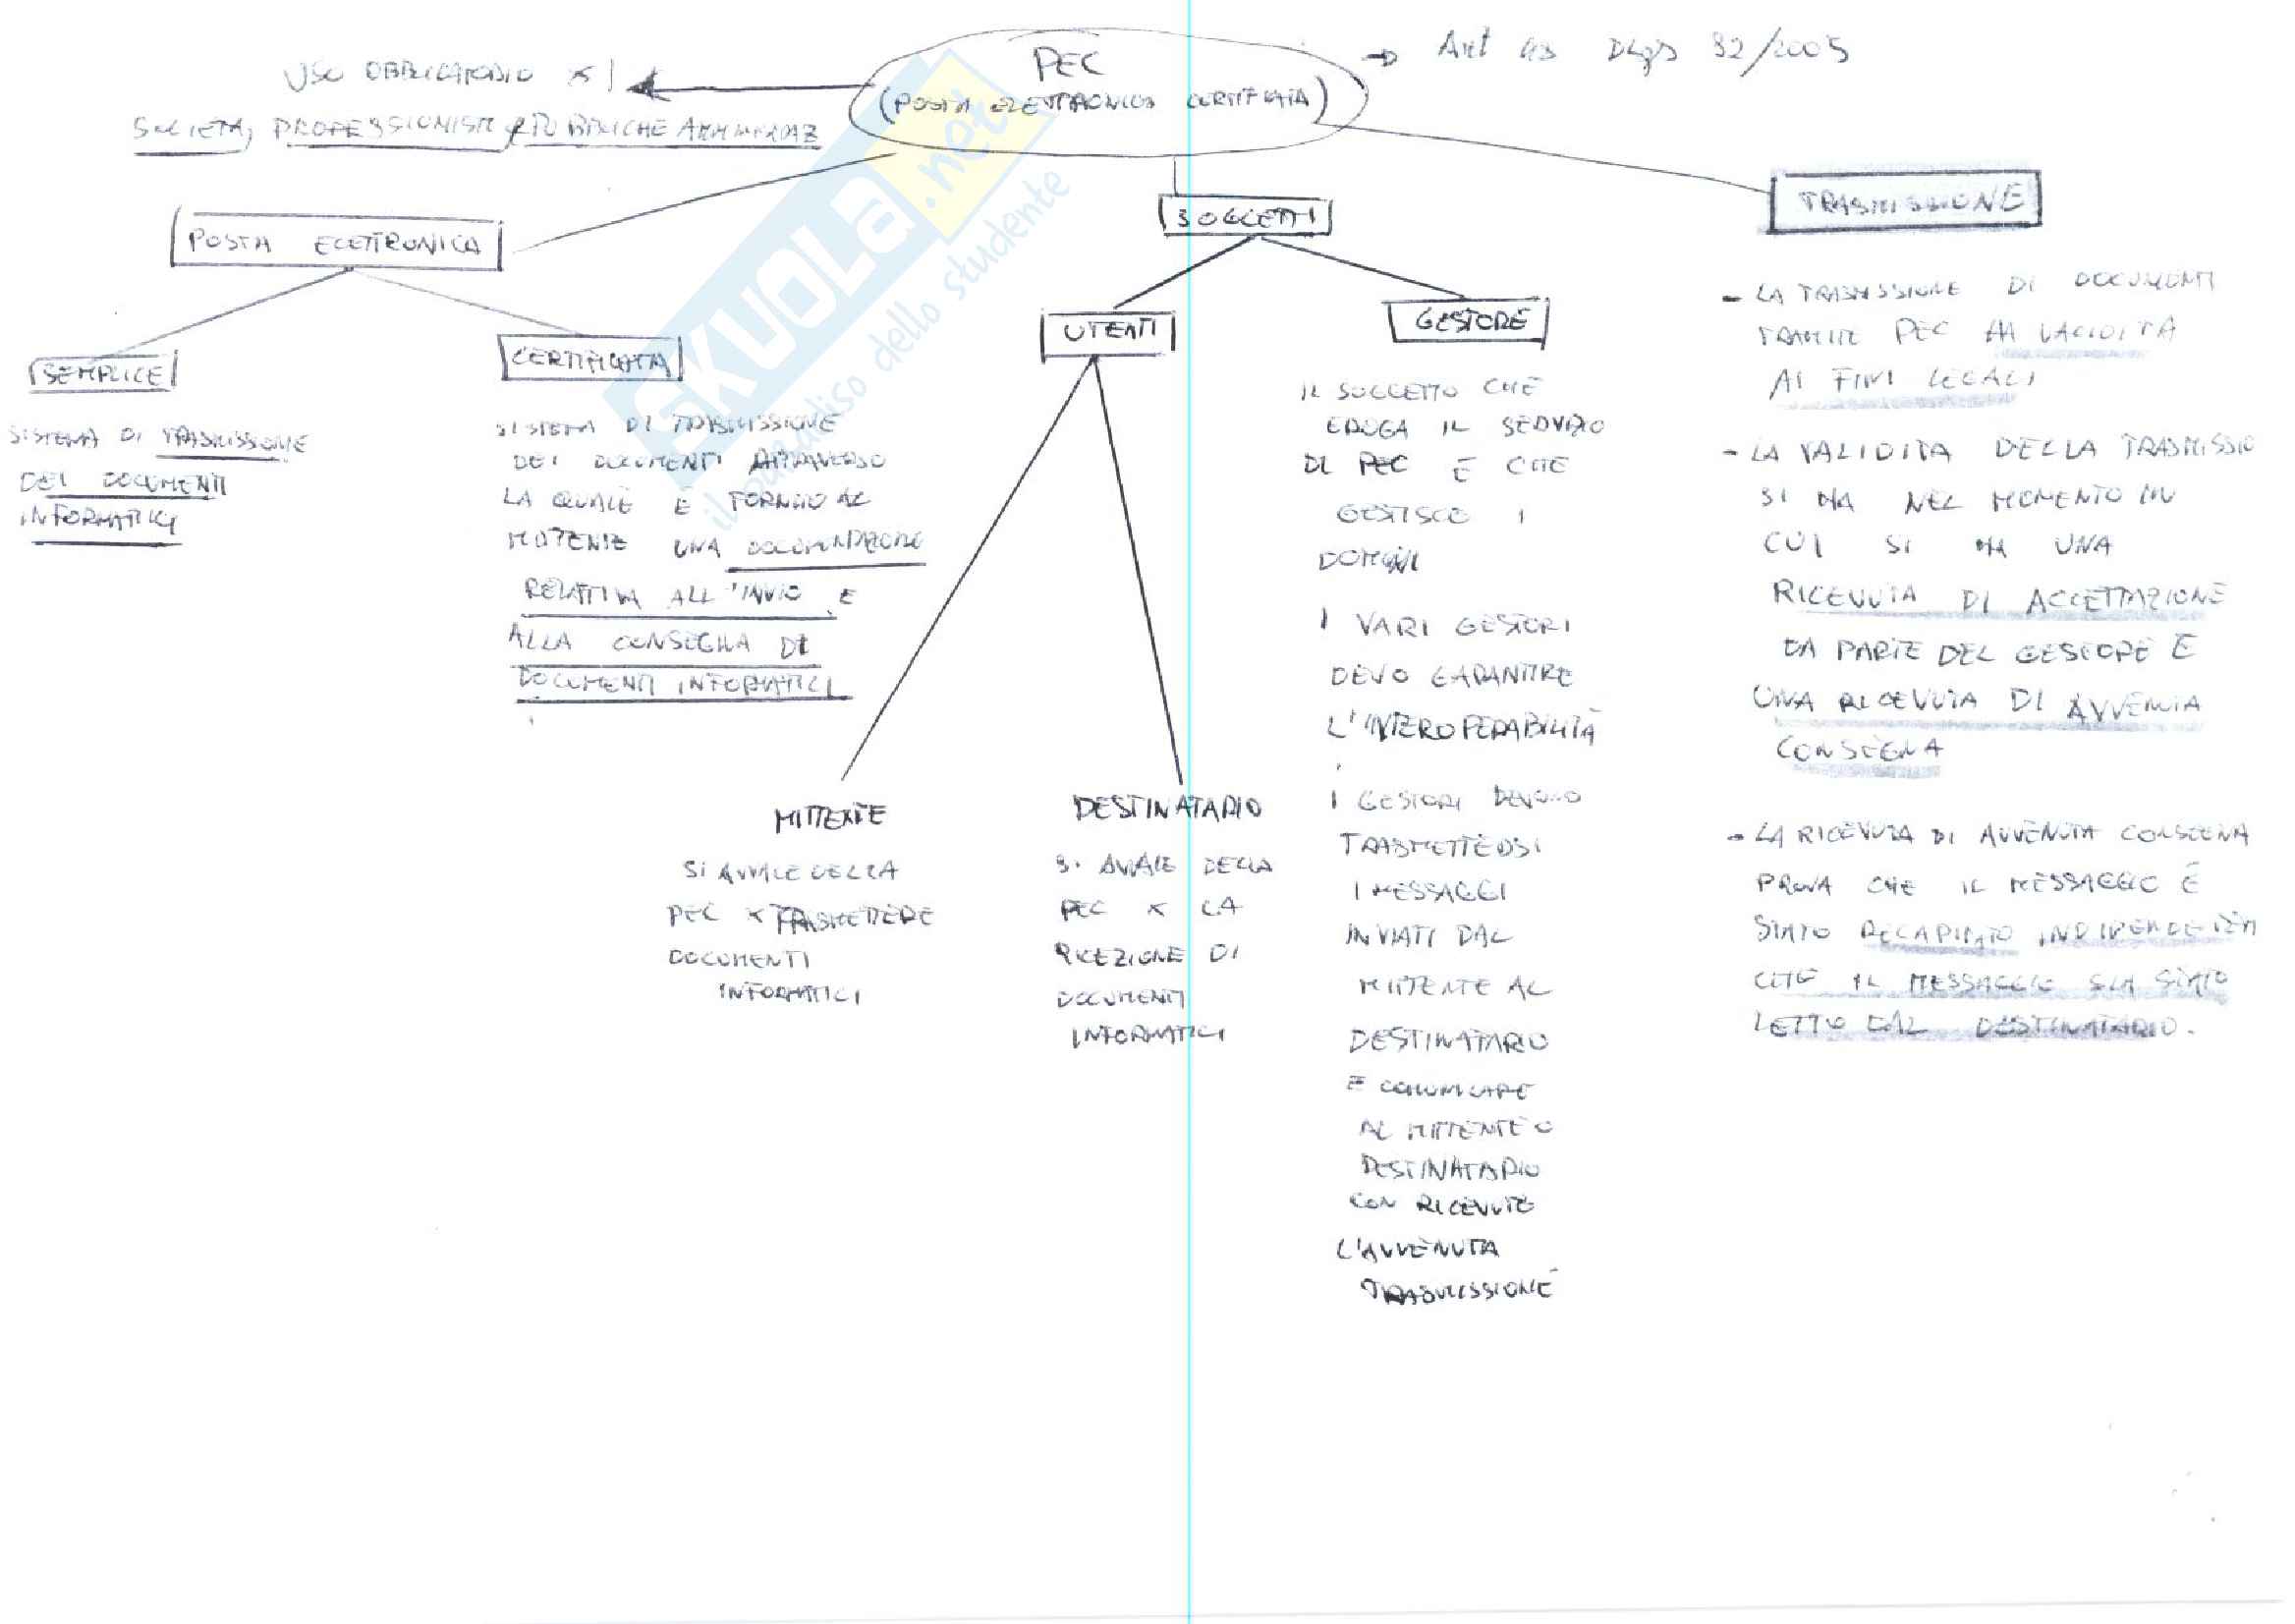 PEC
(POSTA ELETTRONICA CERTIFICATA)
→ Art 48 Dlgs 82/2005
USO OBBLIGATORIO x
SOCIETA, PROFESSIONISTI, PUBBLICHE AMMINISTRAZ
POSTA ELETTRONICA
SEMPLICE
SISTEMA DI TRASMISSIONE
DEI DOCUMENTI
INFORMATICI
CERTIFICATA
SISTEMA DI TRASMISSIONE
DEI DOCUMENTI ATTRAVERSO
LA QUALE È FORNITO AL
MITTENTE UNA DOCUMENTAZIONE
RELATIVA ALL'INVIO E
ALLA CONSEGNA DI
DOCUMENTI INFORMATICI
SOGGETTI
UTENTI
MITTENTE
SI AVVALE DELLA
PEC x TRASMETTERE
DOCUMENTI
INFORMATICI
DESTINATARIO
SI AVVALE DELLA
PEC x LA
RICEZIONE DI
DOCUMENTI
INFORMATICI
GESTORE
IL SOGGETTO CHE
EROGA IL SERVIZIO
DI PEC E CHE
GESTISCE I
DOMINI
I VARI GESTORI
DEVO GARANTIRE
L'INTEROPERABILITÀ
I GESTORI DEVONO
TRASMETTERSI
I MESSAGGI
INVIATI DAL
MITTENTE AL
DESTINATARIO
E COMUNICARE
AL MITTENTE O
DESTINATARIO
CON RICEVUTE
L'AVVENUTA
TRASMISSIONE
TRASMISSIONE
- LA TRASMISSIONE DI DOCUMENTI
TRAMITE PEC HA VALIDITÀ
AI FINI LEGALI
- LA VALIDITA DELLA TRASMISSIO
SI HA NEL MOMENTO IN
CUI SI HA UNA
RICEVUTA DI ACCETTAZIONE
DA PARTE DEL GESTORE E
UNA RICEVUTA DI AVVENUTA
CONSEGNA
- LA RICEVUTA DI AVVENUTA CONSEGNA
PROVA CHE IL MESSAGGIO È
STATO RECAPITATO
CHE IL MESSAGGIO SIA STATO
LETTO DAL DESTINATARIO.
SKUOLA.net
il paradiso dello studente